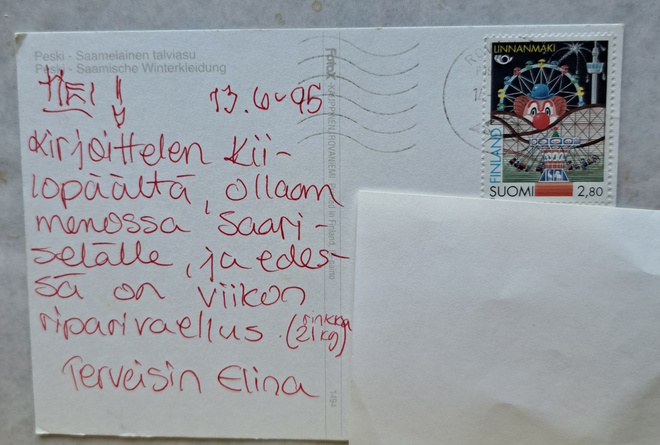 Peski - Saamelainen talviasu
Peski - Saamische Winterkleidung
HEI!
13.6.-95
Kirjoittelen Kii-
lopäältä, ollaan
menossa Saari-
selälle, ja edes-
sä on viikon
riparivaellus. (rinkka
21kg)
Terveisin Elina
LINNANMÄKI
FINLAND
SUOMI 2,80